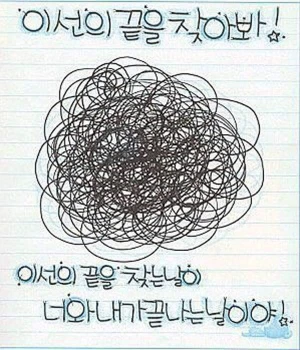 이선의 끝을 찾아봐!
이선의 끝을 찾는날이
너와 내가 끝나는날이야!